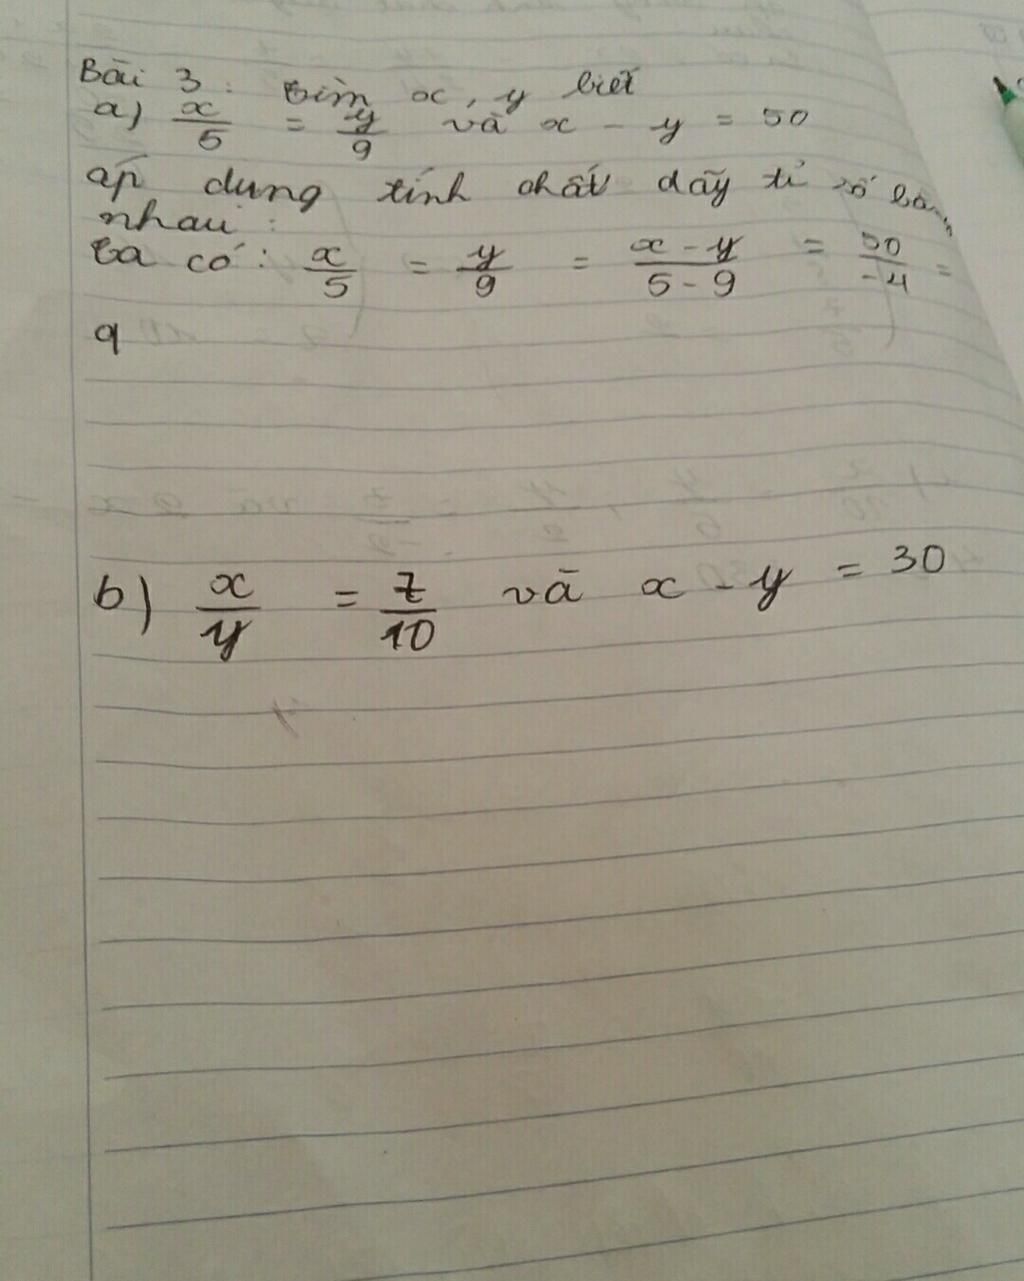 Bài 3: tìm x, y biết
a) x/5 = y/9 và x - y = 50
áp dung tính chất dãy tỉ số
nhau:
ta có: x/5 = y/9 = x - y/5 - 9 = 50/-4 =
9
b) x/y = 7/10 và x - y = 30